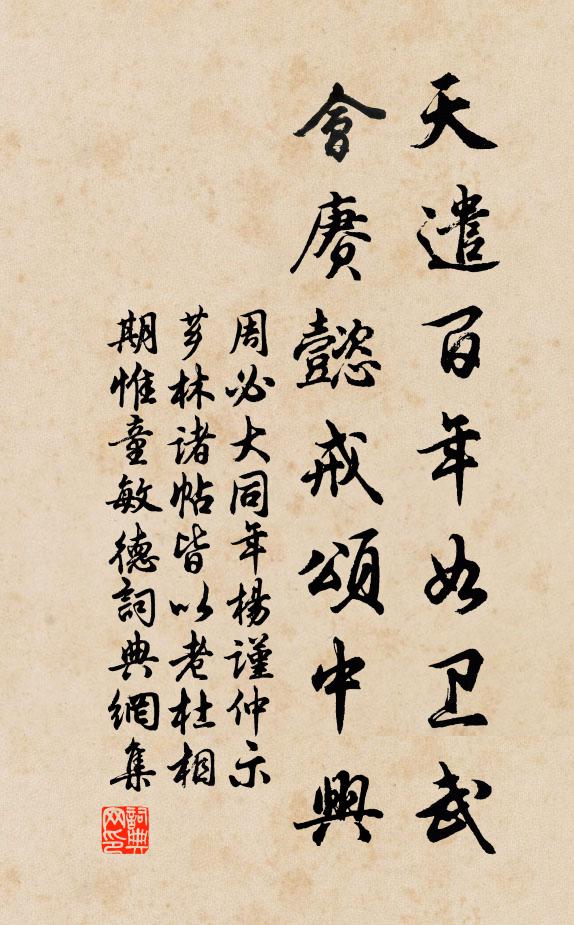 天遣百年如卫武
會赓懿戒頌中興
周必大同年楊謹仲示
芗林诸帖皆以老杜相
期惟童敏德詞典網集
詞典网印